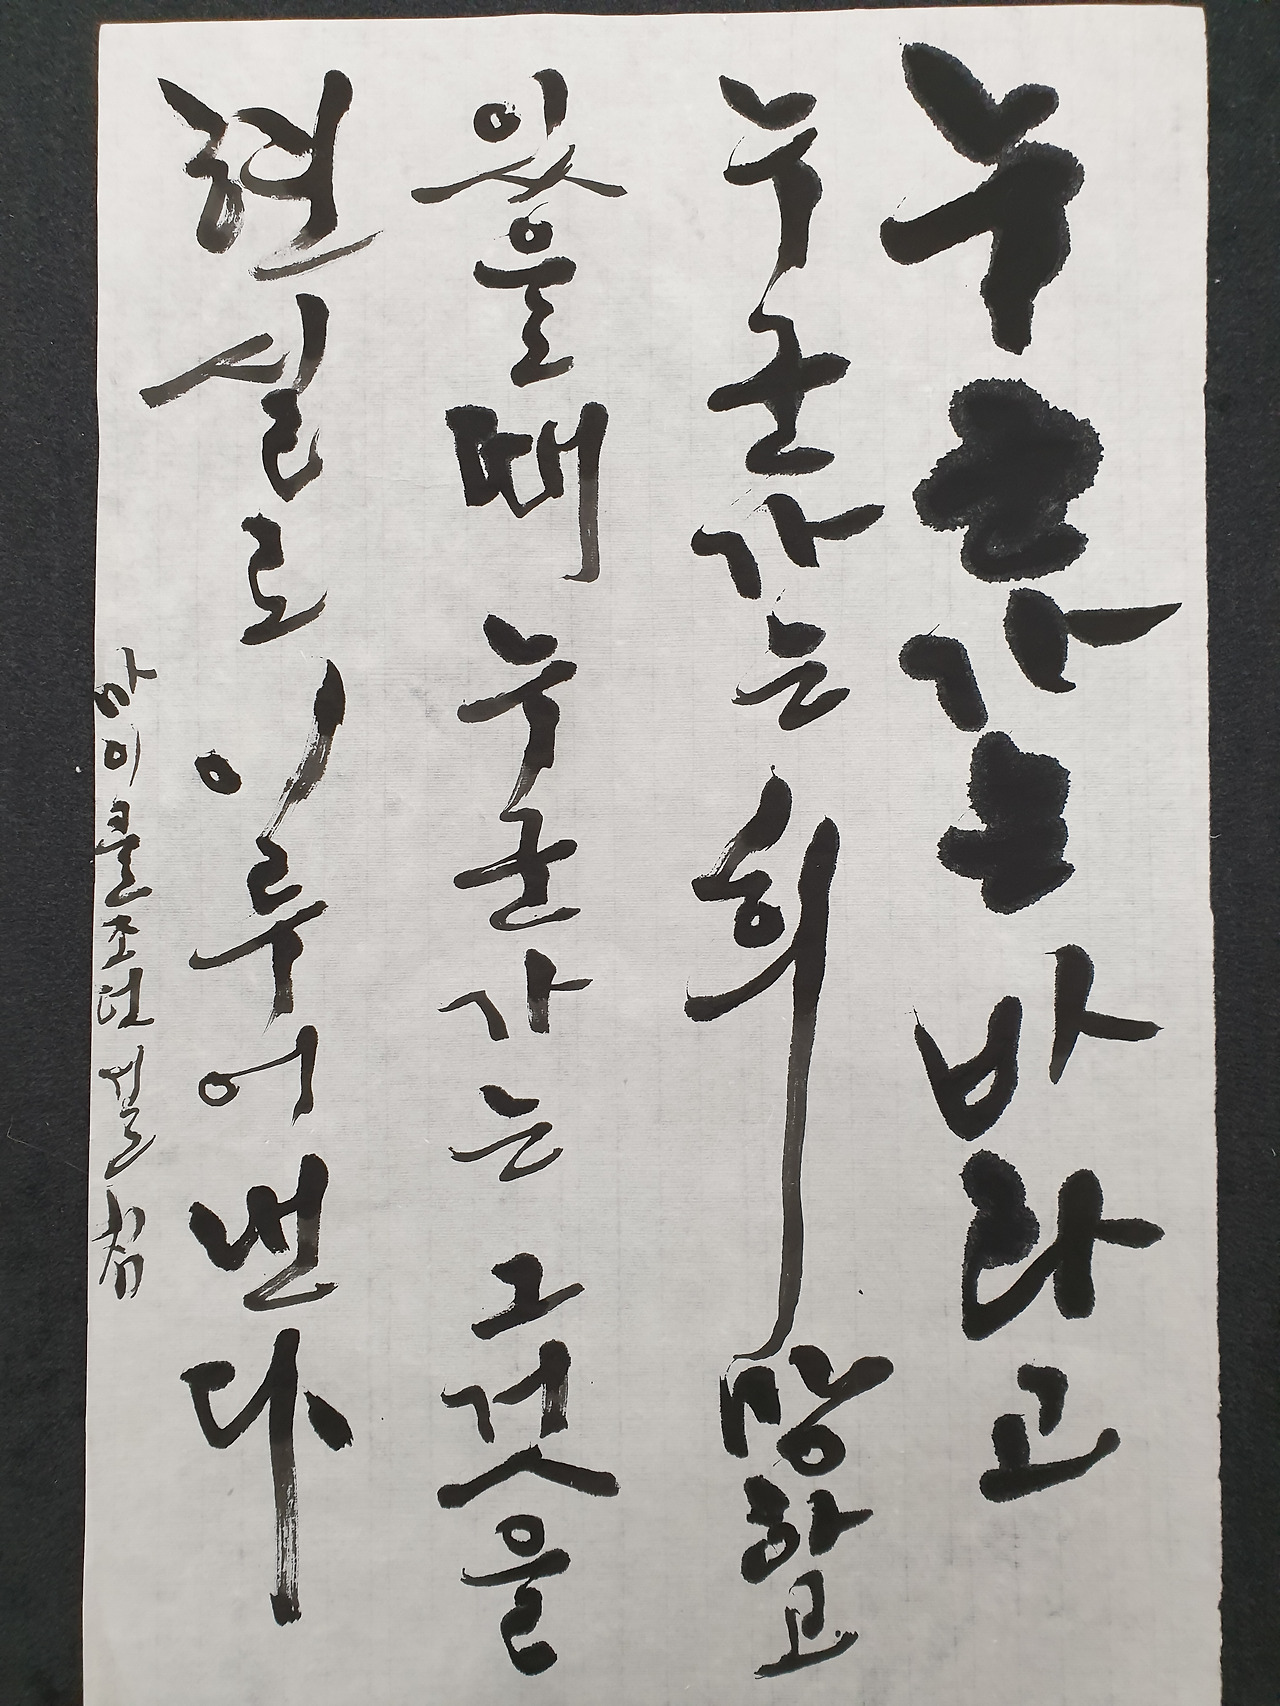 누군가는 바라고
누군가는 희망하고
있을 때 누군가는 그것을
현실로 이루어 낸다
마이클 조던 글